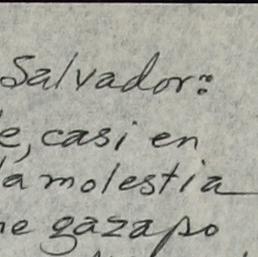 Salvador:
e, casi en
la molestia
ne gazapo